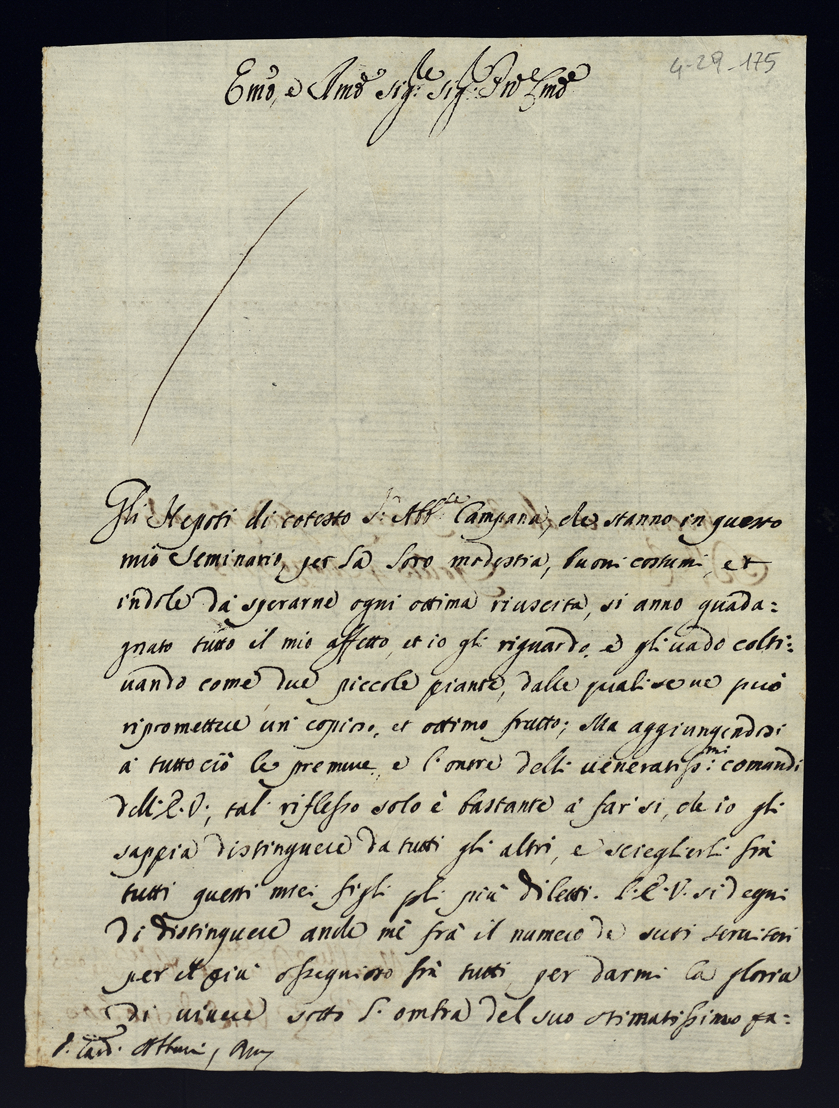 4-29-175
Emo, e Rmo Sig.re Sig.r Pne Colmo
Gli Nepoti di cotesto S.r Abb.te Campana, che stanno in questo
mio Seminario, per la loro modestia, buoni costumi, et
indole da sperarne ogni ottima riuscita, si anno guada:
gnato tutto il mio affetto, et io gli riguardo, e gli vado colti:
vando come due piccole piante, dalle quali se ne può
ripromettere un' copioso, et ottimo frutto; Ma aggiungendosi
a tutto ciò le premure, e l'onore delli veneratiss.mi comandi
dell'E.V., tal riflesso solo è bastante a far si, che io gli
sappia distinguere da tutti gli altri, e sciegherli frà
tutti questi miei figli gli più diletti. L'E.V. si degni
di distinguere anche me frà il numero de suoi servitori
per il più ossequioso frà tutti per darmi la gloria
di vivere sotto l'ombra del suo stimatissimo pa:
S. Card.